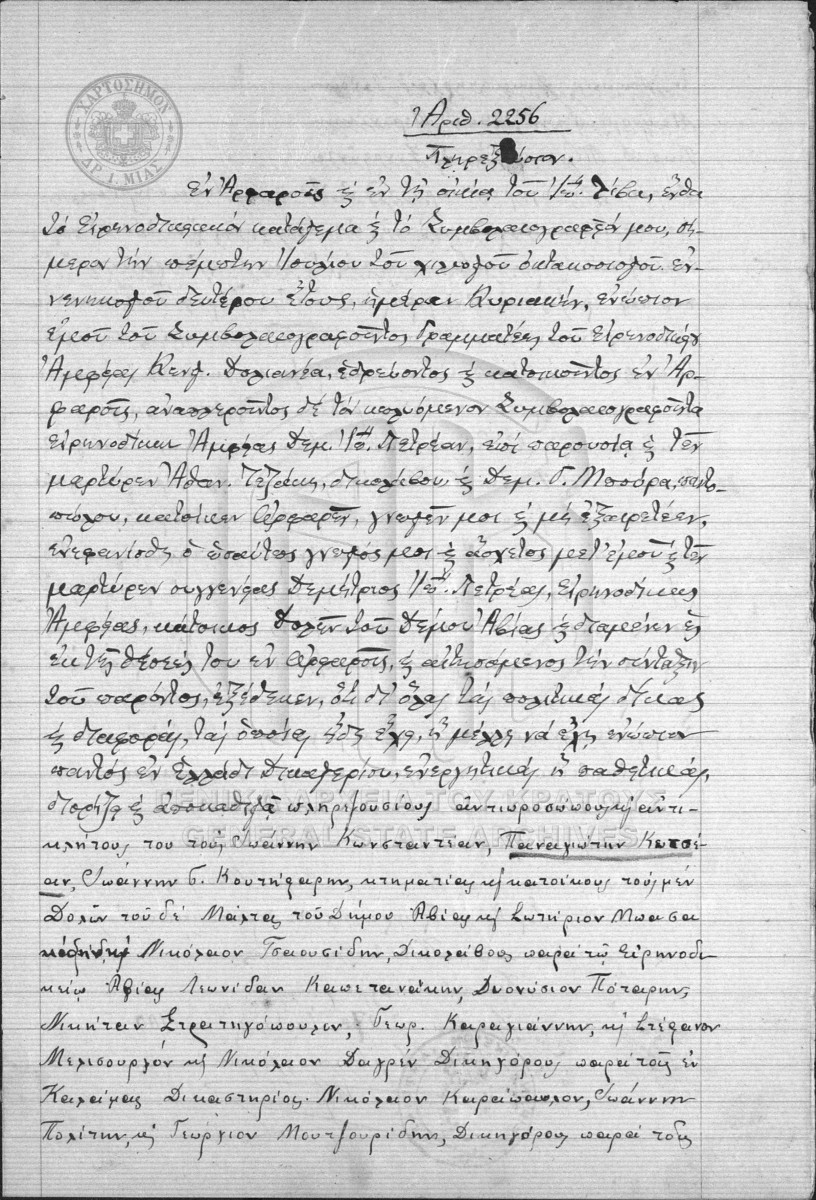 ΧΑΡΤΟΣΗΜΟΝ
ΔΡ. 1. ΜΙΑΣ
Ἀριθ. 2256
Πληρεξούσιον.
Ἐν Ἀρφαροῖς ἐν τῇ οἰκίᾳ τοῦ ἔνθα
τὸ Εἰρηνοδικειακὸν κατάστημα τὸ Συμβολαιογραφεῖόν μου, σή-
μερον τὴν πέμπτην Ἰουλίου τοῦ χιλιοστοῦ ὀκτακοσιοστοῦ ἐν-
νενηκοστοῦ δευτέρου ἔτους, ἡμέραν Κυριακήν, ἐνώπιον
ἐμοῦ τοῦ Συμβολαιογραφοῦντος Γραμματέως τοῦ Εἰρηνοδικείου
Ἀμφείας Δολιανέα, ἑδρεύοντος κατοικοῦντος ἐν Ἀρ-
φαροῖς, ἀναπληροῦντος δὲ τὸν κωλυόμενον Συμβολαιογραφοῦντα
εἰρηνοδίκην Ἀμφείας Δημ. Πετρέαν, ἐπὶ παρουσίᾳ τῶν
μαρτύρων Ἀθαν. δικολάβου Δημ. Γ. Μπούρα, παντο-
πώλου, κατοίκων Ἀρφαρῶν, γνωστῶν μοι μὴ ἐξαιρετέων,
ἐνεφανίσθη ὁ ὡσαύτως γνωστός μοι ἄσχετος μετ' ἐμοῦ τῶν
μαρτύρων συγγενείας Δημήτριος Πετρέας, Εἰρηνοδίκης
Ἀμφείας, κάτοικος Δολῶν τοῦ Δήμου Ἀβίας διαμένων
ἐκ τῆς θέσεώς του ἐν Ἀρφαροῖς, αἰτησάμενος τὴν σύνταξιν
τοῦ παρόντος, ἐξέθηκεν, ὅτι δι' ὅλας τὰς πολιτικὰς δίκας
διαφοράς, τὰς ὁποίας ἤδη ἔχει, ἢ μέλλει νὰ ἔχῃ ἐνώπιον
παντὸς ἐν Ἑλλάδι Δικαστηρίου, ἐνεργητικάς, ἢ παθητικάς,
διορίζει ἀποκαθιστᾷ πληρεξουσίους ἀντιπροσώπους κ ἀντι-
κλήτους του τοὺς Ἰωάννην Κωνσταντέαν, Παναγιώτην Κοτσέ-
αν, Ἰωάννην Κουτήφαρην, κτηματίας κ κατοίκους τοὺς μὲν
Δολῶν τοῦ δὲ Μάλτας τοῦ Δήμου Ἀβίας κ Σωτήριον
Νικόλαον Τσαουσίδην, Δικολάβους παρὰ τῷ Εἰρηνοδι
κείῳ Ἀβίας Λεωνίδαν Καπετανάκην, Διονύσιον Πόταρην,
Νικήταν Στρατηγόπουλον, Γεωρ. Καραγιάννην, κ Στέφανον
Μελισουργὸν κ Νικόλαον Δαγρὲν Δικηγόρους παρὰ τοῖς ἐν
Καλάμαις Δικαστηρίοις. Νικόλαον Καράπαυλον, Ἰωάννην
Πολίτην, κ Γεώργιον Μουτζουρίδην, Δικηγόρους παρὰ τοῖς
ΓΕΝΙΚΑ ΑΡΧΕΙΑ ΤΟΥ ΚΡΑΤΟΥΣ
GENERAL STATE ARCHIVES